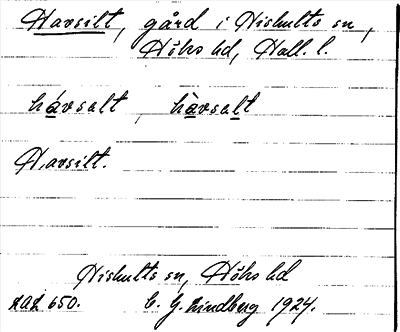 Havsilt, gård i Nishults sn,
Höks hd, Hall. l.
hávsalt, hàvsalt
Havsilt.
Nishults sn, Höks hd
LAL 650. C. G. Lindberg 1924.